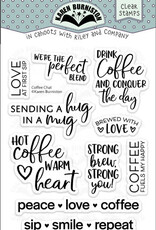 KAREN BURNISTON
CLEAR STAMPS
in cahoots with riley and company
LOVE
AT FIRST SIP
WE'RE THE
perfect
BLEND
DRINK
Coffee
AND CONQUER
the day
Coffee Chat
©Karen Burniston
SENDING a hug
IN a mug!
BREWED WITH
LOVE
HOT
Coffee
WARM
heart
STRONG
brew,
STRONG
you!
COFFEE
FUELS MY HAPPY
peace love coffee
sip smile repeat